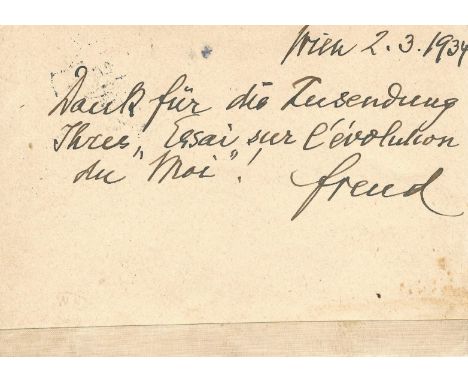 Wien 2.3.1934
Dank für die Zusendung
Ihres „Essai sur l'évolution
du Moi"!
Freud